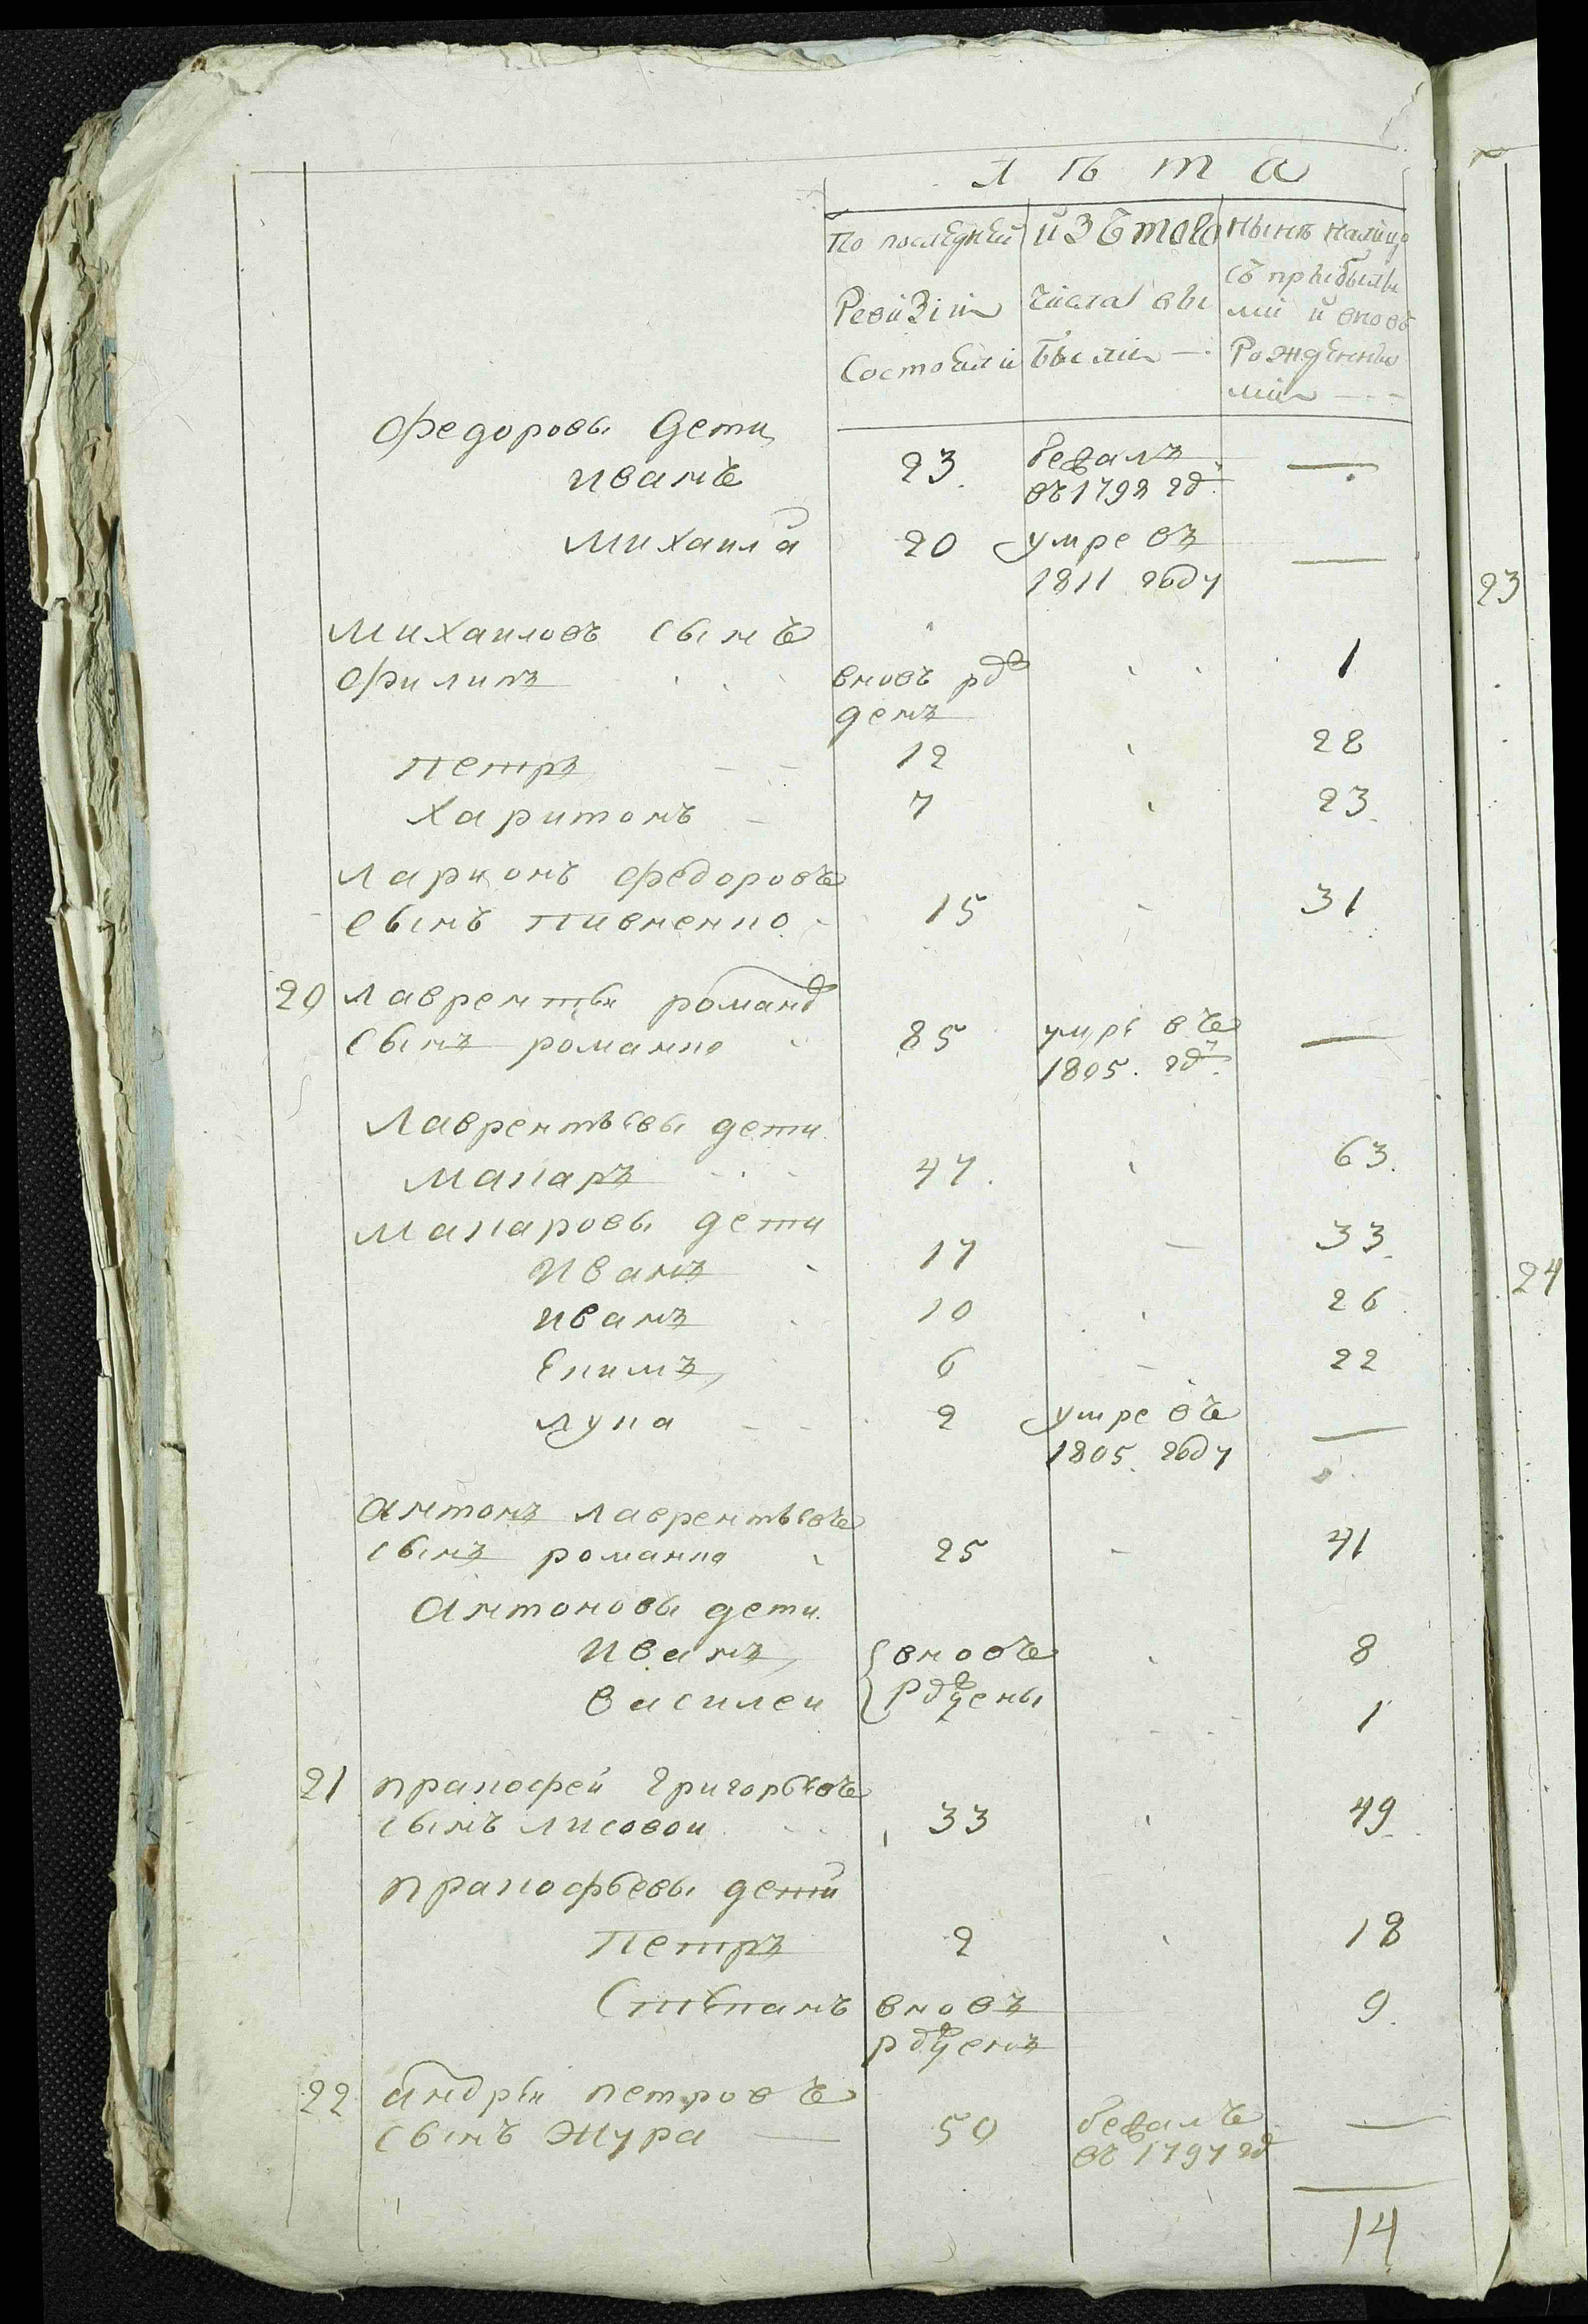 Лѣта
По последней | изъ того | ныне налицо
Ревизіи | числа вы | съ прибылы
состояли | были — | ми и вновь
рожденны
ми — - -
Федоровы дети
Иванъ 23. бежалъ —
въ 1792 гд.
Михаила 20 умре въ —
1811 году
Михаиловъ сынъ
Филипъ вновь рож 1
денъ
Петръ — — 12 28
Харитонъ — 7 23.
Ларионъ Федоровъ
сынъ Пивненко - 15 - 31
20 Лаврентеи Романов
сынъ Романко 85 умре въ —
1805. гд.
Лаврентьевы дети
Макаръ 47. 63.
Макаровы дети
Иванъ 17 — 33.
Иванъ 10 26.
Екимъ 6 — 22
Лука — — 2 умре въ —
1805. году
Антонъ Лаврентьевъ
сынъ Романко 25 - 41
Антоновы дети
Иванъ { вновь 8
Василеи рождены 1
21 Пракофей Григорьевъ
сынъ Лисовои 33 49.
Пракофьевы дети
Петръ 2 18
Степанъ вновь 9.
рожденъ
22 Андреи Петровъ
сынъ Жура — 50 бежалъ —
въ 1797 гд
14
23
24